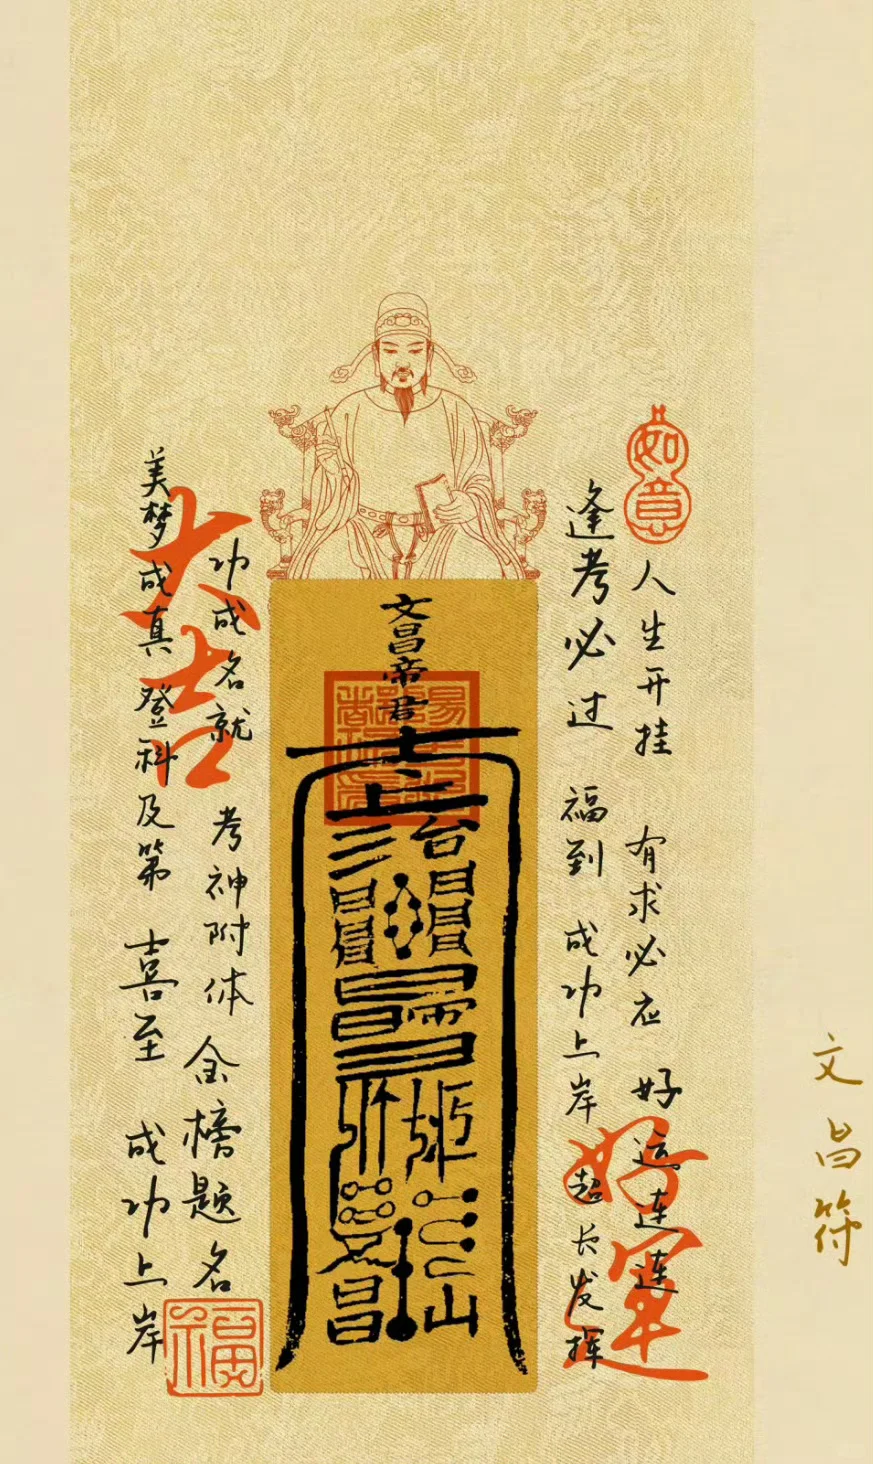 文昌符
如意
人生开挂 有求必应 好运连连
好运
逢考必过 福到 成功上岸 超长发挥
文昌帝君
功成名就 考神附体 金榜题名
大吉
福
美梦成真 登科及第 喜至 成功上岸